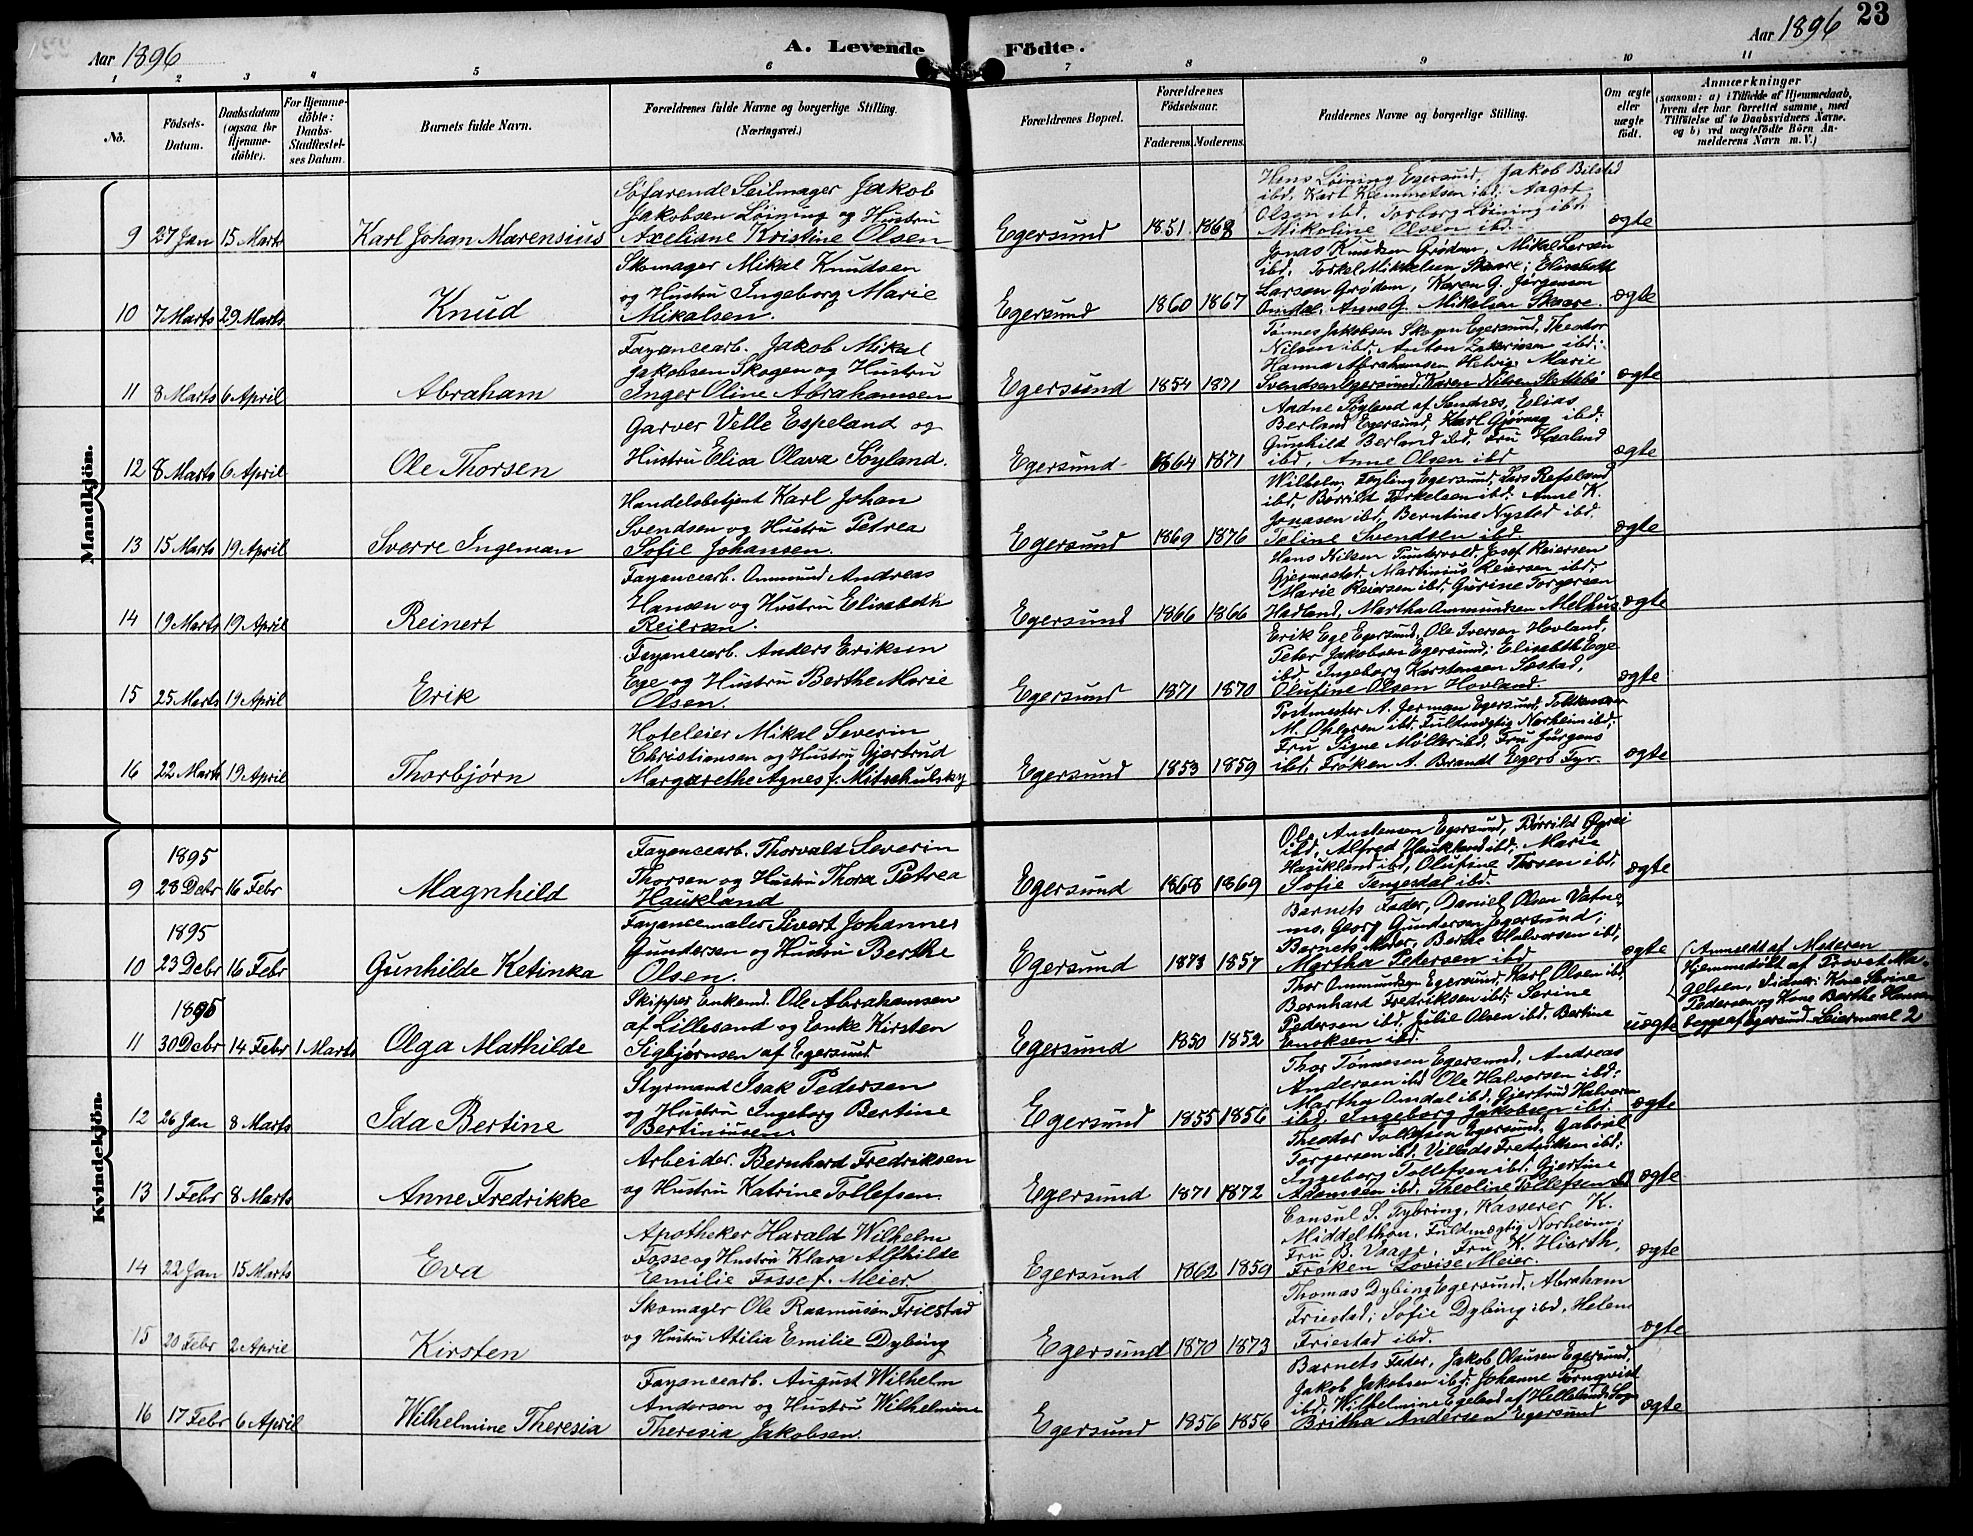 Aar 1896
A. Levende Födte.
Aar 1896
23
1 2 3 4 5 6 7 8 9 10 11
No.
Födsels-
Datum.
Daabsdatum
(ogsaa for
Hjemme-
döbte).
For Hjemme-
döbte:
Daabs-
Stadfæstel-
ses Datum.
Barnets fulde Navn.
Forældrenes fulde Navne og borgerlige Stilling.
(Næringsvei.)
Forældrenes Bopæl.
Forældrenes
Födselsaar.
Faderens. Moderens.
Faddernes Navne og borgerlige Stilling.
Om ægte
eller
uægte
födt.
Anmærkninger
(saasom: a) i Tilfælde af Hjemmedaab,
hvem der har forrettet samme, med
Tilföielse af to Daabsvidners Navne.
og b) ved uægtefödte Börn An-
melderens Navn m. V.)
Mandkjön.
Søfarende Seilmager Jakob
Jakobsen Løining og Hustru
9 27 Jan 15 Marts Karl Johan Marensius Axeliane Kristine Olsen Egersund 1851 1868 ægte
Hans Løining Egersund, Jakob Bilsted
ibd, Karl Klemmetsen ibd. Aagot
Olsen ibd. Torborg Løining ibd.
Mikoline Olsen ibd.
Skomager Mikal Knudsen
og Hustru Ingeborg Marie
10 7 Marts 29 Marts Knud Mikalsen. Egersund 1860 1867 ægte
Jonas Knudsen Grødem, Mikal Larsen
ibd. Torkel Mikkelsen Skaare; Elisabeth
Larsen Grødem, Karen G. Jørgensen
Omdal, Anne G. Mikalsen Skaare.
Fayancearb. Jakob Mikal
Jakobsen Skogen og Hustru
11 8 Marts 6 April Abraham Inger Oline Abrahamsen Egersund 1854 1871 ægte
Tønnes Jakobsen Skogen Egersund, Theodor
Nilsen ibd, Anton Zakarisen ibd:
Hanna Abrahamsen, Helvig Marie
Svendsen Egersund, Karen Nilsen Slettebø
Garver Velle Espeland og
12 8 Marts 6 April Ole Thorsen Hustru Elisa Olava Søyland. Egersund 1864 1871 ægte
Andne Søyland af Sandnes, Elias
Berland Egersund, Karl Gjøvaag ibd:
Gunhild Berland ibd, Fru Haaland
ibd, Anne Olsen ibd
Handelsbetjent Karl Johan
Svendsen og Hustru Petrea
13 15 Marts 19 April Sverre Ingeman Sofie Johansen. Egersund 1869 1876 ægte
Wilhelm Tegling Egersund, Lars Refsland
ibd, Børrild Torkelsen ibd. Anne K.
Jonasen ibd, Berntine Nysted ibd.
Taline Svendsen ibd
Fayancearb. Ommund Andreas
Hansen og Hustru Elisabeth
14 19 Marts 19 April Reinert Reiersen. Egersund 1866 1866 ægte
Hans Nilsen Puntervold, Josef Reiersen
Gjermestad, Martinius Reiersen ibd,
Marie Reiersen ibd, Gurine Torgersen
Hadland, Martha Ommundsen Melhus
Fayancearb. Anders Eriksen
Ege og Hustru Berthe Marie
15 25 Marts 19 April Erik Olsen. Egersund 1871 1870 ægte
Erik Ege Egersund, Ole Iversen Hovland,
Peter Jakobsen Egersund; Elisabeth Ege
ibd, Ingeborg Karstensen Søstad,
Olufine Olsen Hovland.
Hoteleier Mikal Severin
Christiansen og Hustru Gjertrud
16 22 Marts 19 April Thorbjørn Margarethe Agnes f. Mitschulsky Egersund 1853 1859 ægte
Postmester A. Jerman Egersund, Toldkasserer
M. Ohlgren ibd. Fuldmægtig Norheim ibd;
Fru Signe Møller ibd, Fru Jürgens
ibd, Frøken A. Brandt Egerö Fyr.
Kvindekjön.
1895 Fayancearb. Thorvald Severin
Thorsen og Hustru Thora Petrea
9 28 Debr 16 Febr Magnhild Haukland Egersund 1868 1869 ægte
Ole Anstensen Egersund, Børrild Øgrei
ibd, Alfred Haukland ibd; Marie
Haukland ibd, Olufine Thorsen ibd,
Sofie Tengesdal ibd.
1895 Fayancemaler Sivert Johannes
Gundersen og Hustru Berthe
10 23 Debr 16 Febr Gunhilde Ketinka Olsen. Egersund 1873 1857 ægte
Barnets Fader, Daniel Olsen Vatne-
mo, Georg Gundersen Egersund;
Barnets Moder, Berthe Halvorsen ibd,
Martha Petersen ibd
1895 Skipper Enkemd. Ole Abrahamsen
af Lillesand og Enke Kirsten
11 30 Debr 14 Febr 1 Marts Olga Mathilde Sigbjørnsen af Egersund Egersund 1850 1852 uægte
Thor Ommundsen Egersund, Karl Olsen ibd,
Bernhard Fredriksen ibd; Serine
Pedersen ibd, Julie Olsen ibd, Bertine
Enoksen ibd.
(Anmeldt af Moderen
Hjemmedøbt af Provst Ma-
gelsen, Vidner: Kone Serine
Pedersen og Kone Berthe Hansen
begge af Egersund. Leiermaal 2
Styrmand Isak Pedersen
og Hustru Ingeborg Bertine
12 26 Jan 8 Marts Ida Bertine Bertiniusen. Egersund 1855 1856 ægte
Thor Tønnesen Egersund, Andreas
Andersen ibd, Ole Halvorsen ibd,
Martha Omdal ibd, Gjertrud Halvorsen
ibd, Ingeborg Jakobsen ibd.
Arbeider. Bernhard Fredriksen
13 1 Febr 8 Marts Anne Fredrikke og Hustru Katrine Tollefsen Egersund 1871 1872 ægte
Theodor Tollefsen Egersund, Gabriel
Torgersen ibd, Villads Fredriksen ibd;
Ingeborg Tollefsen ibd, Gjertine
Adamsen ibd, Theoline Tollefsen ibd
Apotheker Harald Wilhelm
Fosse og Hustru Klara Alfhilde
14 22 Jan 15 Marts Eva Emilie Fosse f. Meier Egersund 1862 1859 ægte
Consul S. Fybring, Kasserer K.
Middelthon, Fuldmægtig Norheim;
Fru B. Vaage, Fru K. Hiorth,
Frøken Lovise Meier.
Skomager Ole Rasmusen Friestad
15 20 Febr 2 April Kirsten og Hustru Atilia Emilie Dybing Egersund 1870 1873 ægte
Thomas Dybing Egersund, Abraham
Friestad; Sofie Dybing ibd, Helene
Friestad ibd.
Fayancearb. August Wilhelm
Anderson og Hustru Wilhelmine
16 17 Febr 6 April Wilhelmine Theresia Theresia Jakobsen. Egersund 1856 1856 ægte
Barnets Fader, Jakob Olausen Egersund,
Jakob Jakobsen ibd; Johanne Tornqvist
ibd, Wilhelmine Egeland af Helleland Sogn
Britha Andersen Egersund